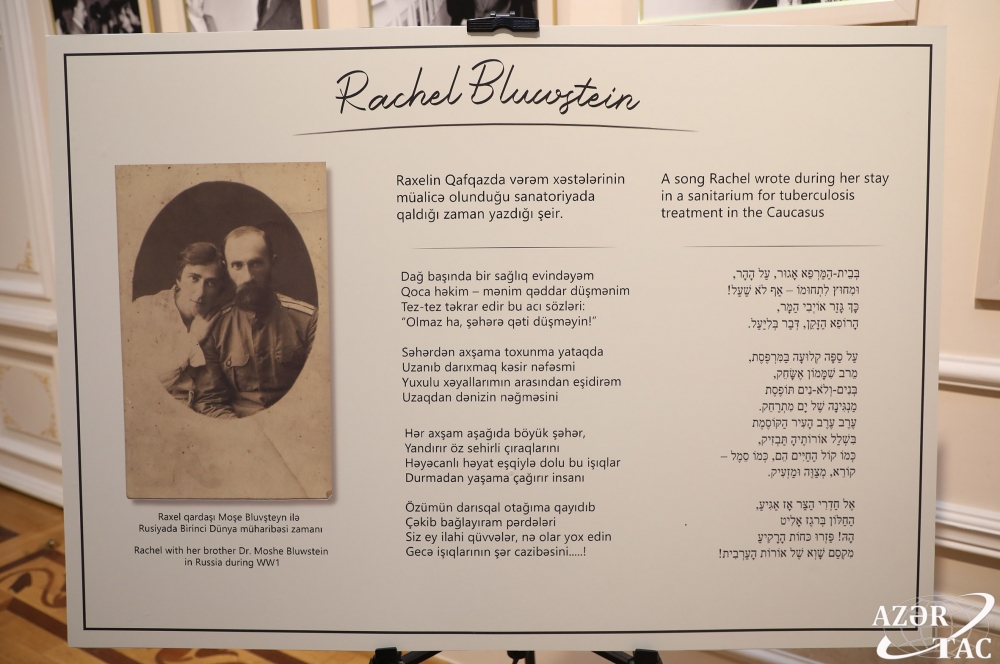 Rachel Bluwstein
Raxelin Qafqazda vərəm xəstələrinin
müalicə olunduğu sanatoriyada
qaldığı zaman yazdığı şeir.
Dağ başında bir sağlıq evindəyəm
Qoca həkim – mənim qəddar düşmənim
Tez-tez təkrar edir bu acı sözləri:
“Olmaz ha, şəhərə qəti düşməyin!”
Səhərdən axşama toxunma yataqda
Uzanıb darıxmaq kəsir nəfəsmi
Yuxulu xəyallarımın arasından eşidirəm
Uzaqdan dənizin nəğməsini
Hər axşam aşağıda böyük şəhər,
Yandırır öz sehirli çıraqlarını
Həyəcanlı həyat eşqiylə dolu bu işıqlar
Durmadan yaşama çağırır insanı
Özümün darısqal otağıma qayıdıb
Çəkib bağlayıram pərdələri
Siz ey ilahi qüvvələr, nə olar yox edin
Gecə işıqlarının şər cazibəsini.....!
A song Rachel wrote during her stay
in a sanitarium for tuberculosis
treatment in the Caucasus
בְּבֵית-הַמַּרְפֵּא אָגוּר, עַל הָהָר,
וּמִחוּץ לִתְחוּמוֹ – אַף לֹא שַׁעַל!
כָּךְ גָּזַר אוֹיְבִי הַמַּר,
הָרוֹפֵא הַזָּקֵן, דְּבַר בְּלִיַּעַל.
עַל סַפָּה קְלוּעָה בַּמִּרְפֶּסֶת,
מֵרֹב שִׁמָּמוֹן אֶשָּׂחֵק,
בְּנִים-וְלֹא-נִים תּוֹפֶסֶת
מַנְגִּינָה שֶׁל יָם מִתְרַחֵק.
עֶרֶב עֶרֶב הָעִיר הַקּוֹסֶמֶת
בִּשְׁלַל אוֹרוֹתֶיהָ תַּבְזִיק,
כְּמוֹ קוֹל הַחַיִּים הֵם, כְּמוֹ סֵמֶל –
קוֹרֵא, מְצַוֶּה וּמַזְעִיק.
אֶל חַדְרִי הַצַּר אָז אַגִּיעַ,
הַחַלּוֹן בְּרֹגֶז אָלִיט
הָהּ! פַּזְּרוּ כֹּחוֹת הָרָקִיעַ
מִקְסַם שָׁוְא שֶׁל אוֹרוֹת הָעַרְבִית!
Raxel qardaşı Moşe Bluvşteyn ilə
Rusiyada Birinci Dünya müharibəsi zamanı
Rachel with her brother Dr. Moshe Bluwstein
in Russia during WW1
AZƏR
TAC